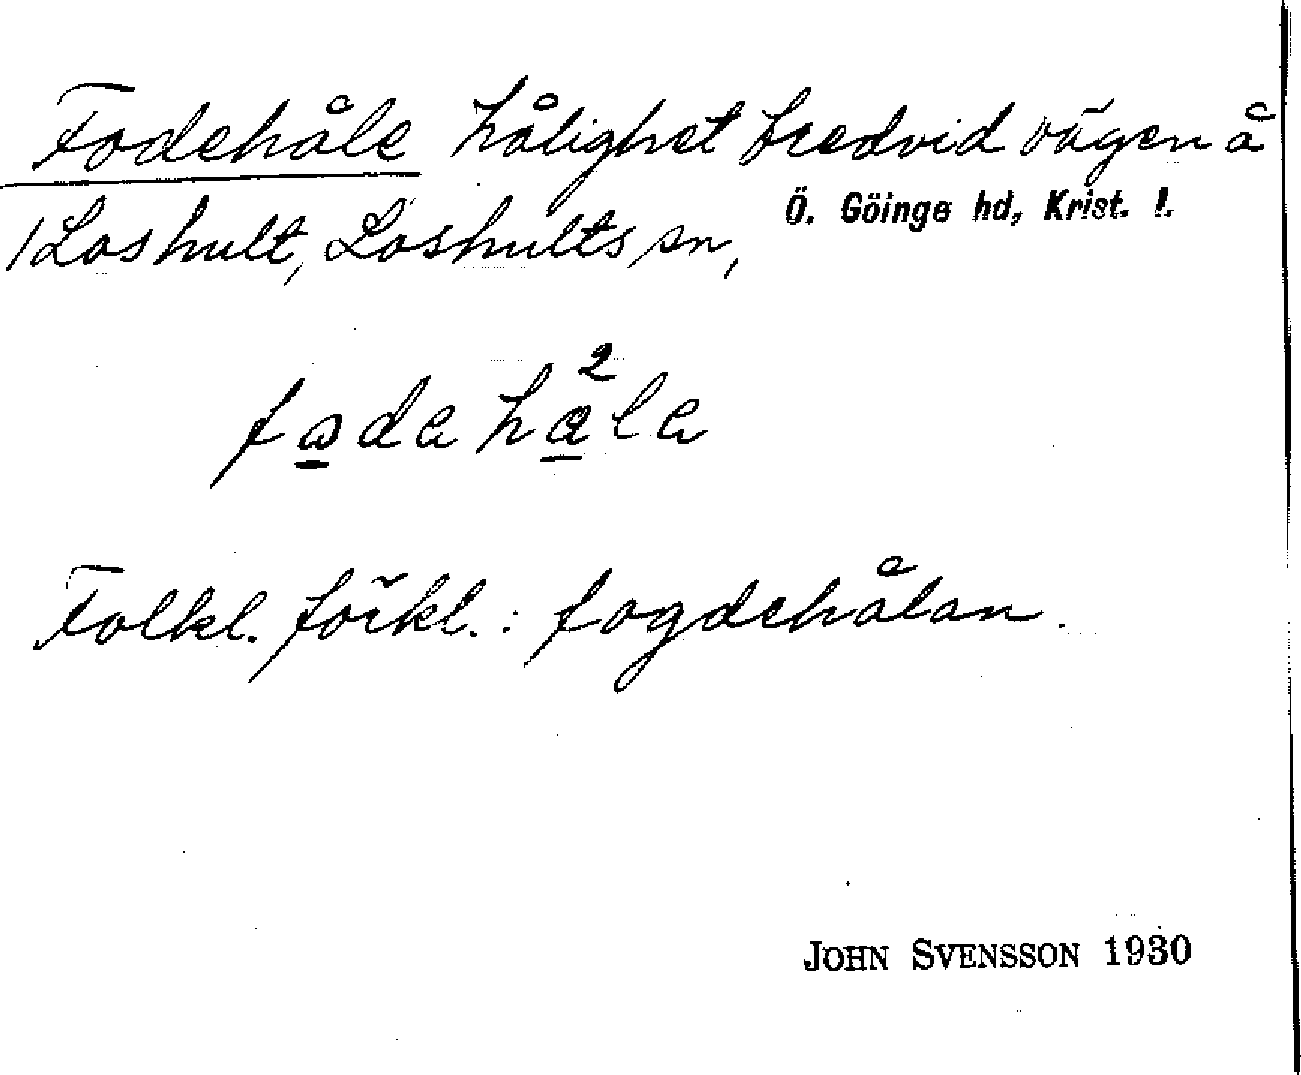 Fodehåle hålighet bredvid vägen å
/Loshult, Loshults sn, Ö. Göinge hd, Krist. l.
Folkl. förkl.: fogdehålan.
JOHN SVENSSON 1930